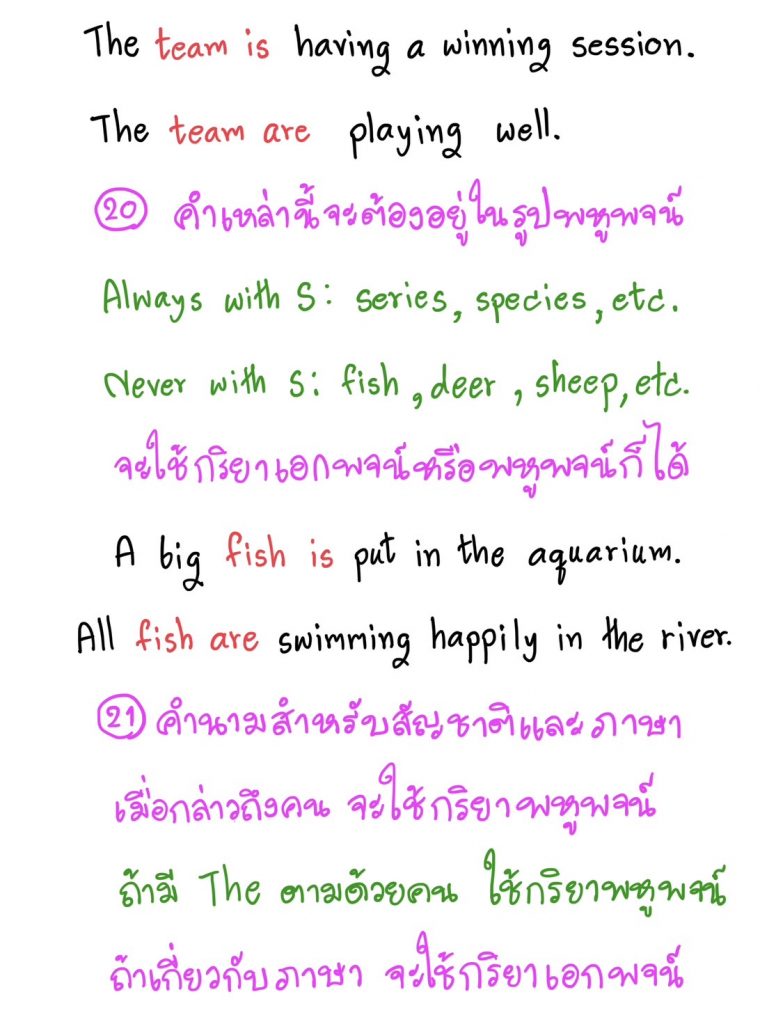 The team is having a winning session.
The team are playing well.
20 คำเหล่านี้จะต้องอยู่ในรูปพหูพจน์
Always with S: series, species, etc.
Never with S: fish, deer, sheep, etc.
จะใช้กริยาเอกพจน์หรือพหูพจน์ก็ได้
A big fish is put in the aquarium.
All fish are swimming happily in the river.
21 คำนามสำหรับสัญชาติและภาษา
เมื่อกล่าวถึงคน จะใช้กริยาพหูพจน์
ถ้ามี The ตามด้วยคน ใช้กริยาพหูพจน์
ถ้าเกี่ยวกับภาษา จะใช้กริยาเอกพจน์